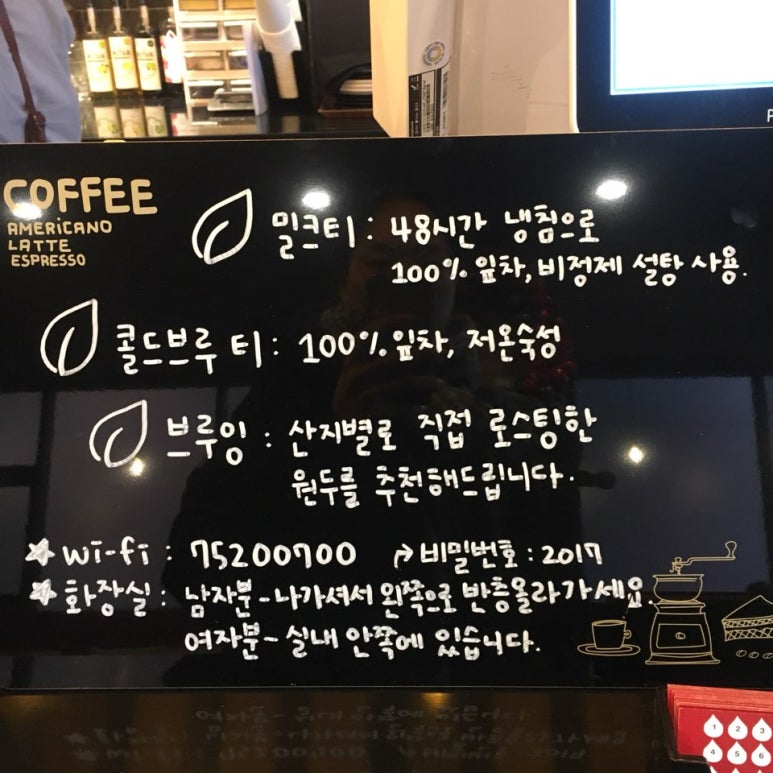 COFFEE
AMERICANO
LATTE
ESPRESSO
밀크티 : 48시간 냉침으로
100% 잎차, 비정제 설탕 사용.
콜드브루 티 : 100% 잎차, 저온숙성
브루잉 : 산지별로 직접 로스팅한
원두를 추천해드립니다.
★ wi-fi : 75200700 ↱ 비밀번호 : 2017
★ 화장실 : 남자분 - 나가셔서 왼쪽으로 반층올라가세요.
여자분 - 실내 안쪽에 있습니다.
P
1 2 3
4 5 6